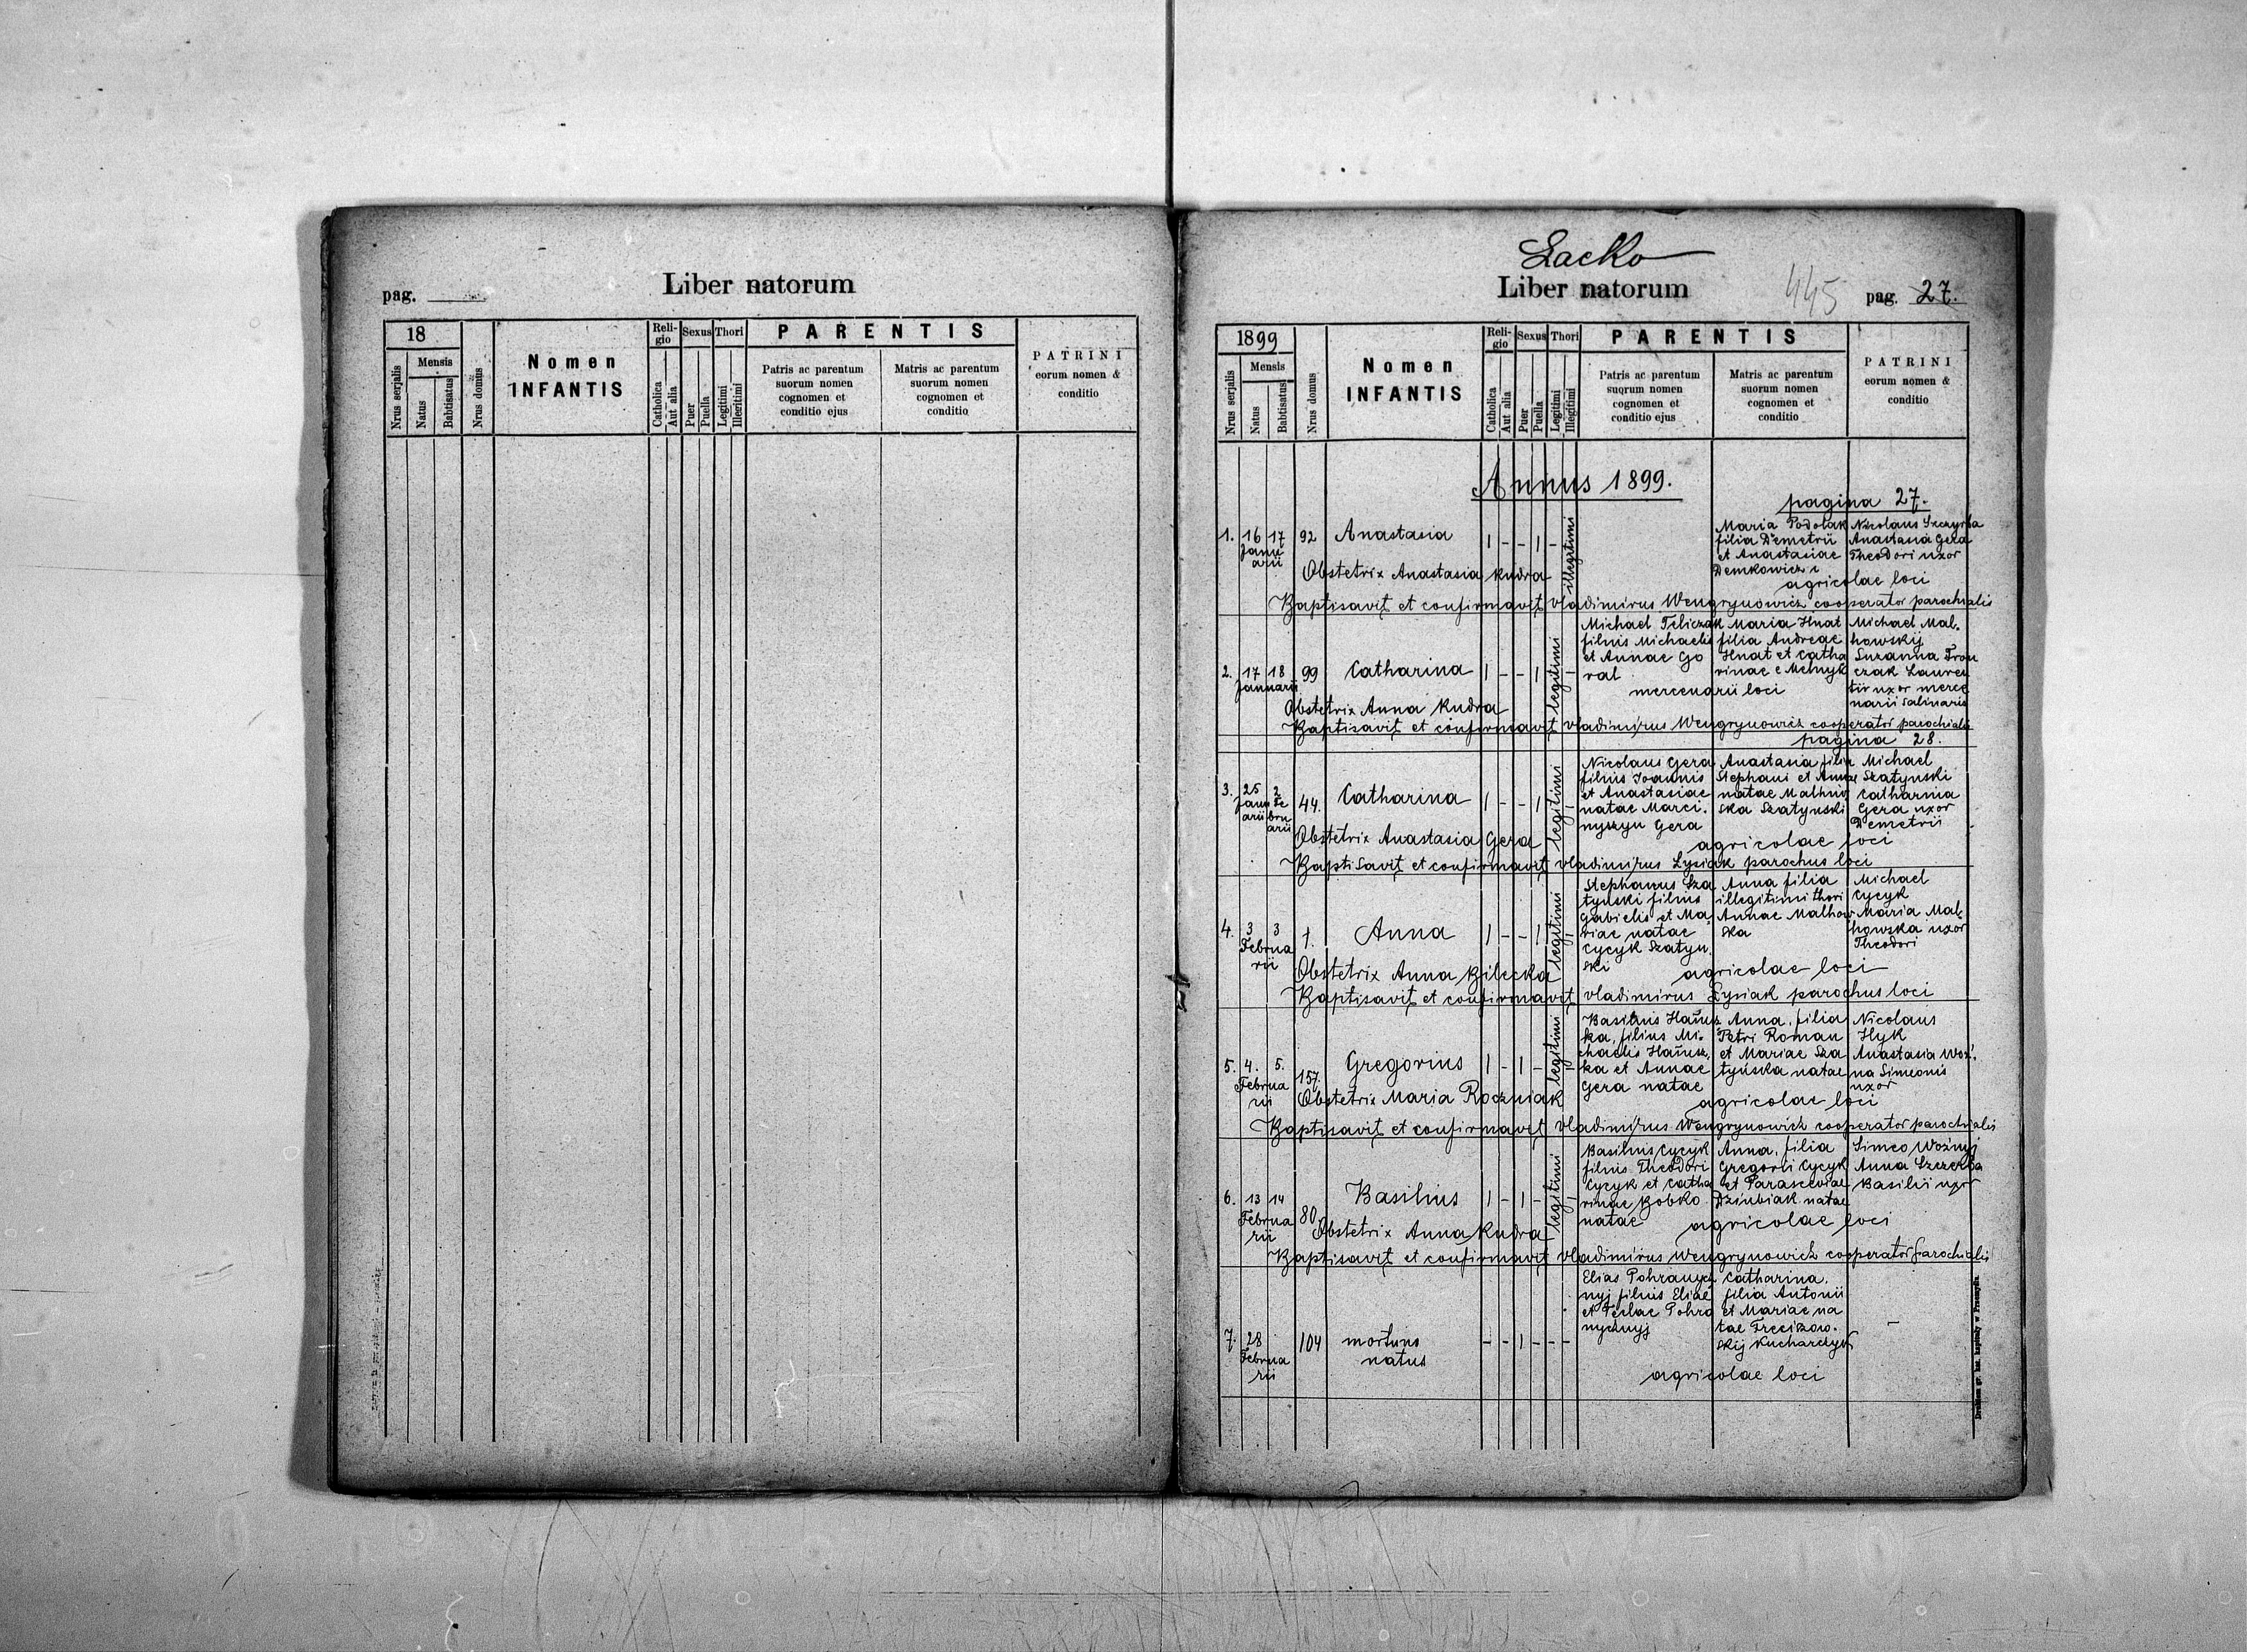 pag.
Liber natorum
18
Mensis
Nrus serjalis
Natus
Babtisatus
Nrus domus
Nomen
INFANTIS
Reli-
gio
Sexus
Thori
Catholica
Aut alia
Puer
Puella
Legitimi
Illeritimi
PARENTIS
Patris ac parentum
suorum nomen
cognomen et
conditio ejus
Matris ac parentum
suorum nomen
cognomen et
conditio
PATRINI
eorum nomen &
conditio
Lacko
Liber natorum
445
pag. 27.
1899
Mensis
Nrus serjalis
Natus
Babtisatus
Nrus domus
Nomen
INFANTIS
Reli-
gio
Sexus
Thori
Catholica
Aut alia
Puer
Puella
Legitimi
Illegitimi
PARENTIS
Patris ac parentum
suorum nomen
cognomen et
conditio ejus
Matris ac parentum
suorum nomen
cognomen et
conditio
PATRINI
eorum nomen &
conditio
Annus 1899.
pagina 27.
1. 16 17 92 Anastasia 1 - - 1 - illegitimi
Janu
arii
Maria Podolak
filia Demetrii
et Anastasiae
Demkowicz
Nicolaus
Anastasia Gera
Theodori uxor
agricolae loci
Obstetrix Anastasia Kudra
Baptisavit et confirmavit Vladimirus Wengrynowicz cooperator parochialis
2. 17 18 99 Catharina 1 - - 1 legitimi -
Januarii
Michael Teliczak
filius Michaelis
et Annae Go
ral
Maria Hnat
filia Andreae
Hnat et Catha
rinae e Melnyk
Michael Mal-
howskij
Suzanna Fron
czak Lauren
tii uxor merce
narii salinaris
mercenarii loci
Obstetrix Anna Kudra
Baptisavit et confirmavit Vladimirus Wengrynowicz cooperator parochialis
pagina 28.
3. 25 2 44. Catharina 1 - - 1 legitimi -
Janu Fe
arii bru
arii
Nicolaus Gera
filius Joannis
et Anastasiae
natae Marci-
nyszyn Gera
Anastasia filia
Stephani et Annae
natae Malhow
ska Szatynski
Michael
Szatynski
Catharina
Gera uxor
Demetrii
agricolae loci
Obstetrix Anastasia Gera
Baptisavit et confirmavit Vladimirus Lysiak parochus loci
4. 3 3 1. Anna 1 - - 1 legitimi -
Februa
rii
Stephanus Sza
tynski filius
Gabrielis et Ma
riae natae
Cycyk Szatyn
ski
Anna filia
illegitimi thori
Annae Malhow
ska
Michael
Cycyk
Maria Mal-
howska uxor
Theodori
agricolae loci
Obstetrix Anna Bilecka
Baptisavit et confirmavit Vladimirus Lysiak parochus loci
5. 4. 5. 157. Gregorius 1 - 1 - legitimi -
Februa
rii
Basilius Hanus
ka, filius Mi-
chaelis Hanus
ka et Annae
Gera natae
Anna, filia
Petri Roman
et Mariae Sza
tyńska natae
Nicolaus
Hyk
Anastasia Woź-
na Simeonis
uxor
agricolae loci
Obstetrix Maria Roczniak
Baptisavit et confirmavit Vladimirus Wengrynowicz cooperator parochialis
6. 13 14 80 Basilius 1 - 1 - legitimi -
Februa
rii
Basilius Cycyk
filius Theodori
Cycyk et Catha
rinae Bobko
natae
Anna, filia
Gregorii Cycyk
et Parasceviae
Dziubiak natae
Simeo Woźnyj
Anna Szczerba
Basilii uxor
agricolae loci
Obstetrix Anna Kudra
Baptisavit et confirmavit Vladimirus Wengrynowicz cooperator parochialis
7. 28 104 mortuus - - 1 - - -
Februa natus
rii
Elias Pohranycz
nyj filius Eliae
et Teclae Pohra
nycznyj
Catharina,
filia Antonii
et Mariae na
tae
skij Kucharczyk
-
agricolae loci